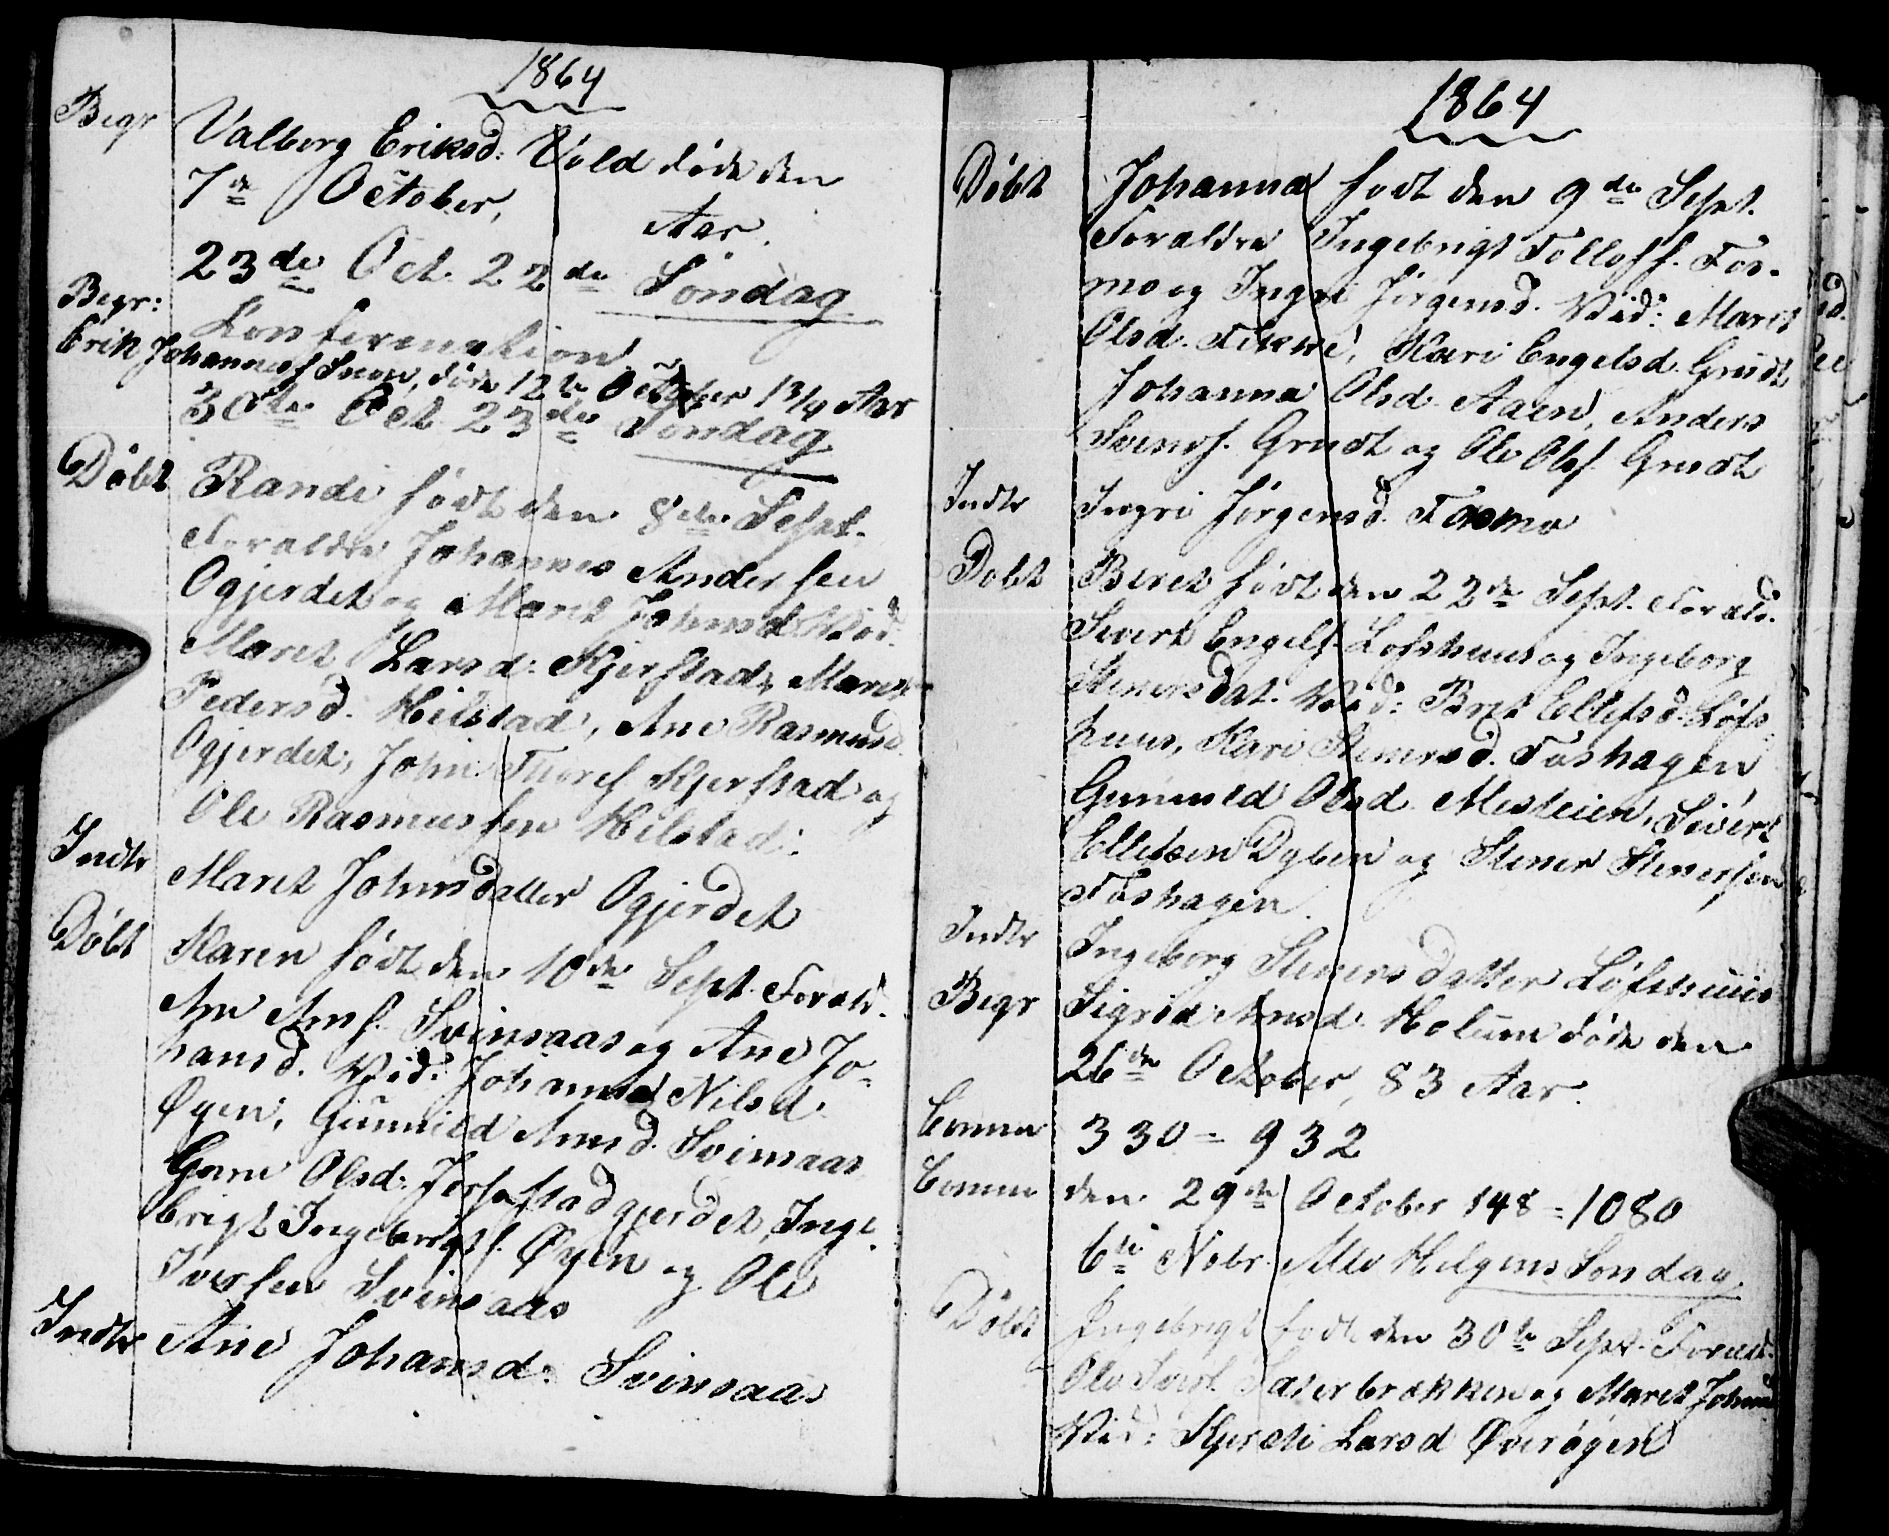 1864
Begr Valborg Eriksd: Vold døde den
7de October, Aar.
23de Oct. 22de Søndag
Confirmation
Begr: Erik Johannesf Snen, døde 12te October 13/4 Aar
30te Oct. 23de Søndag
Døbt Randi født den 8de Sept.
Foraldre Johannes Andersen
Ogjerdet og Maret Johnsd. Vid:
Maret Larsd: Kjerstad, Maret
Pedersd. Hilstad, Ane Rasmusd
Ogjerdet, John Thoresf Kjerstad og
Ole Rasmussen Hilstad.
Indtr Maret Johnsdatter Ogjerdet
Døbt Karen født den 10de Sept. Forald.
Arn Arnf. Svinsaas og Ane Jo-
hansd. Vid: Johanna Nilsd.
Øyen, Gunnild Arnsd. Svinsaas
Guru Olsd. Jørstadgjerdet, Inge-
brigt Ingebrigtsf. Øyen og Ole
Iversen Svinsaas
Indtr Ane Johansd: Svinsaas
1864
Døbt Johanna født den 9de Sept.
Foraldre Ingebrigt Tolleff. For-
mo og Ingri Jørgensd. Vid: Maret
Olsd. Fikkve, Kari Engelsd. Grudt
Johanna Olsd. Aaen, Anders
Svensf. Grudt og Ole Olsf. Grudt
Indtr Ingri Jørgensd. Formo
Døbt Beret født den 22de Sept. Forald.
Sivert Engelf. Løfshuus og Ingeborg
Stenersdat. Vid: Bret Ellefsd. Løfs-
huus, Kari Stenersd. Foshagen
Gunnild Olsd. Mesteien, Sivert
Ellefsen Dyben og Stener Stenersen
Foshagen.
Indtr Ingeborg Stenersdatter Løfshuus
Begr Sigrid Arnsd. Holum døde den
26de October, 83 Aar.
Comm 330 = 932
Comm den 29de October 148 = 1080
6te Nobr. Alle Helgens Søndag.
Døbt Ingebrigt født den 30te Sept. Forald.
Ole Iversf. Saterbrækken og Maret Johnsd
Vid: Kjersti Larsd Øverøyen